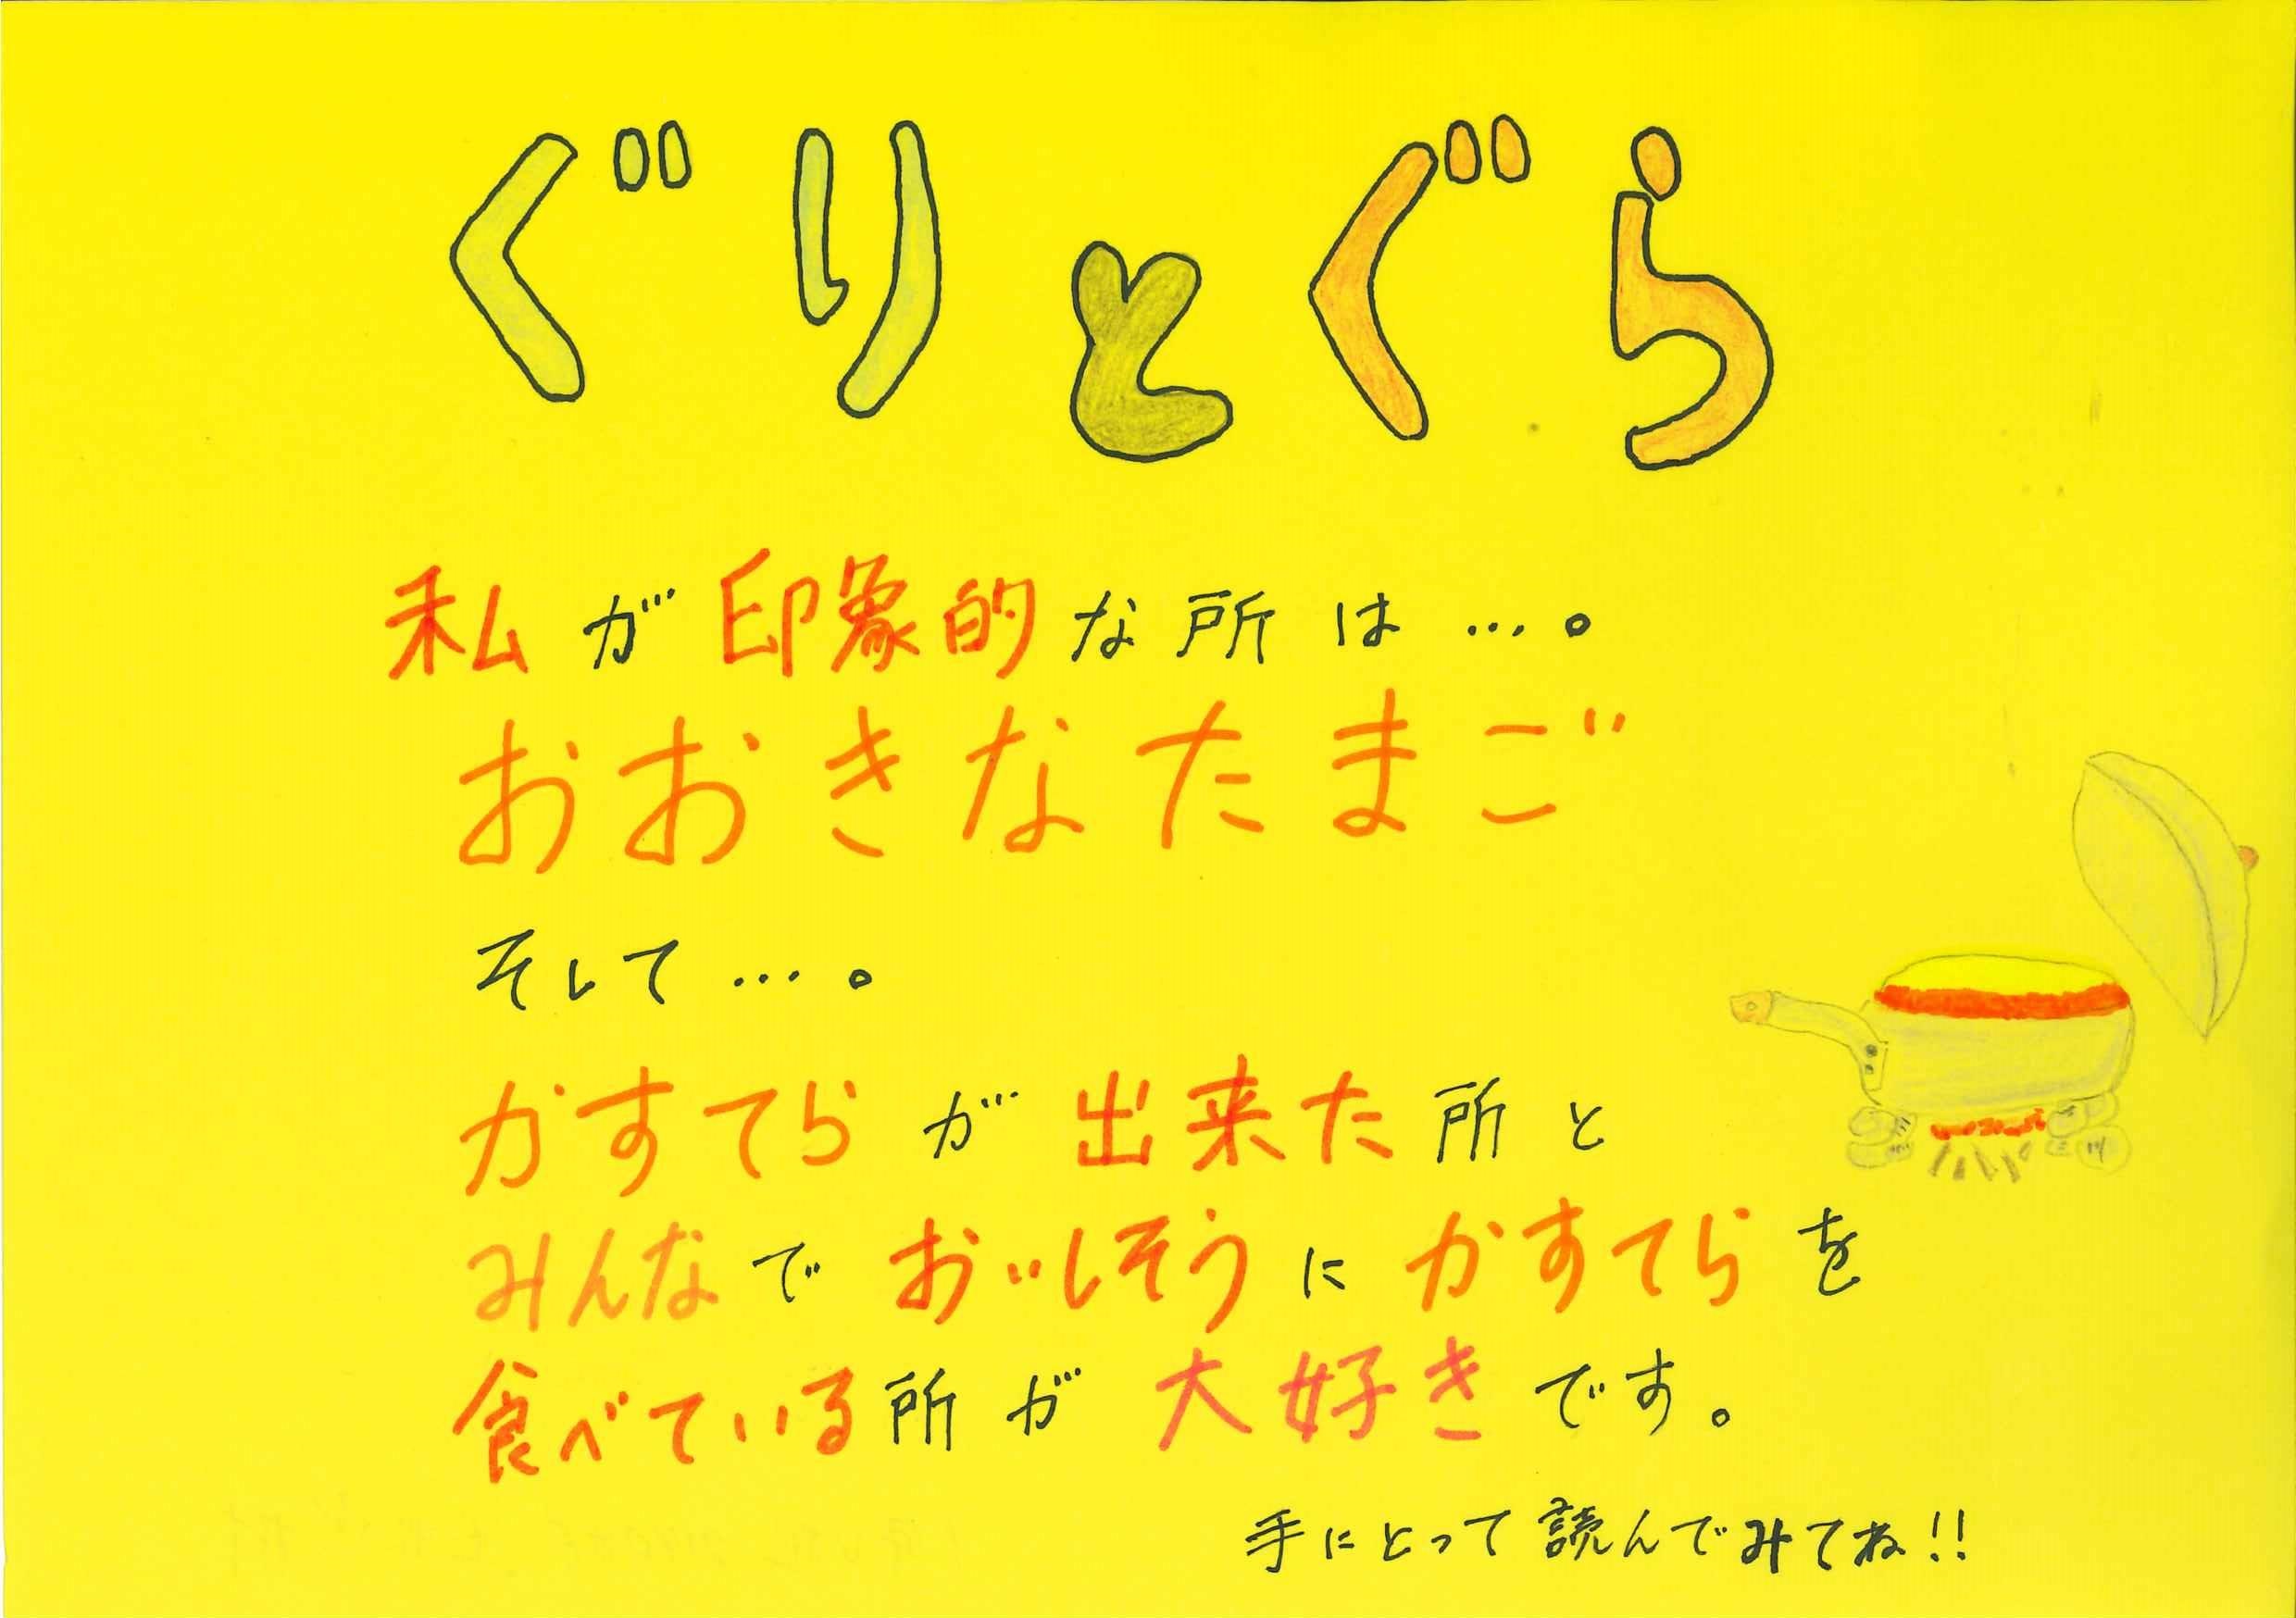 ぐりとぐら
私が印象的な所は…。
おおきなたまご
そして…。
かすてらが出来た所と
みんなでおいしそうにかすてらを
食べている所が大好きです。
手にとって読んでみてね!!